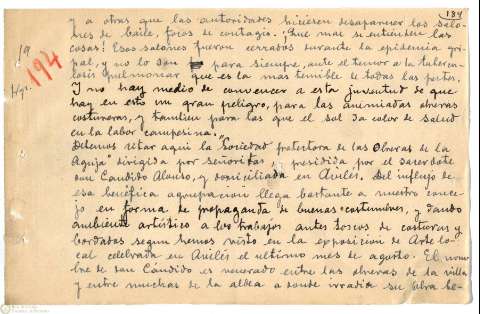 184
y a otras que las autoridades hiciesen desaparecer los salo-
nes de baile, focos de contagio. ¡Que mal se entienden las
cosas! Esos salones fueron cerrados durante la epidemia gri-
pal, y no lo son para siempre, ante el temor a la tubercu-
losis pulmonar que es la mas temible de todas las pestes.
194
Y no hay medio de convencer a esta juventud de que
hay en esto un gran peligro, para las anemiadas obreras
costureras, y tambien para las que el sol da color de salud
en la labor campesina."
Debemos citar aqui la "Sociedad protectora de las Obreras de la
Aguja" dirigida por señoritas y presidida por el sacerdote
don Candido Alonso, y domiciliada en Avilés. Del influjo de
esa benéfica agrupacion llega bastante a nuestro conce-
jo en forma de propaganda de buenas costumbres, y dando
ambiente artístico a los trabajos antes toscos de costuras y
bordados segun hemos visto en la exposicion de Arte lo-
cal celebrada en Avilés el ultimo mes de agosto. El nom-
bre de don Candido es venerado entre las obreras de la villa
y entre muchas de la aldea a donde irradia su obra be-